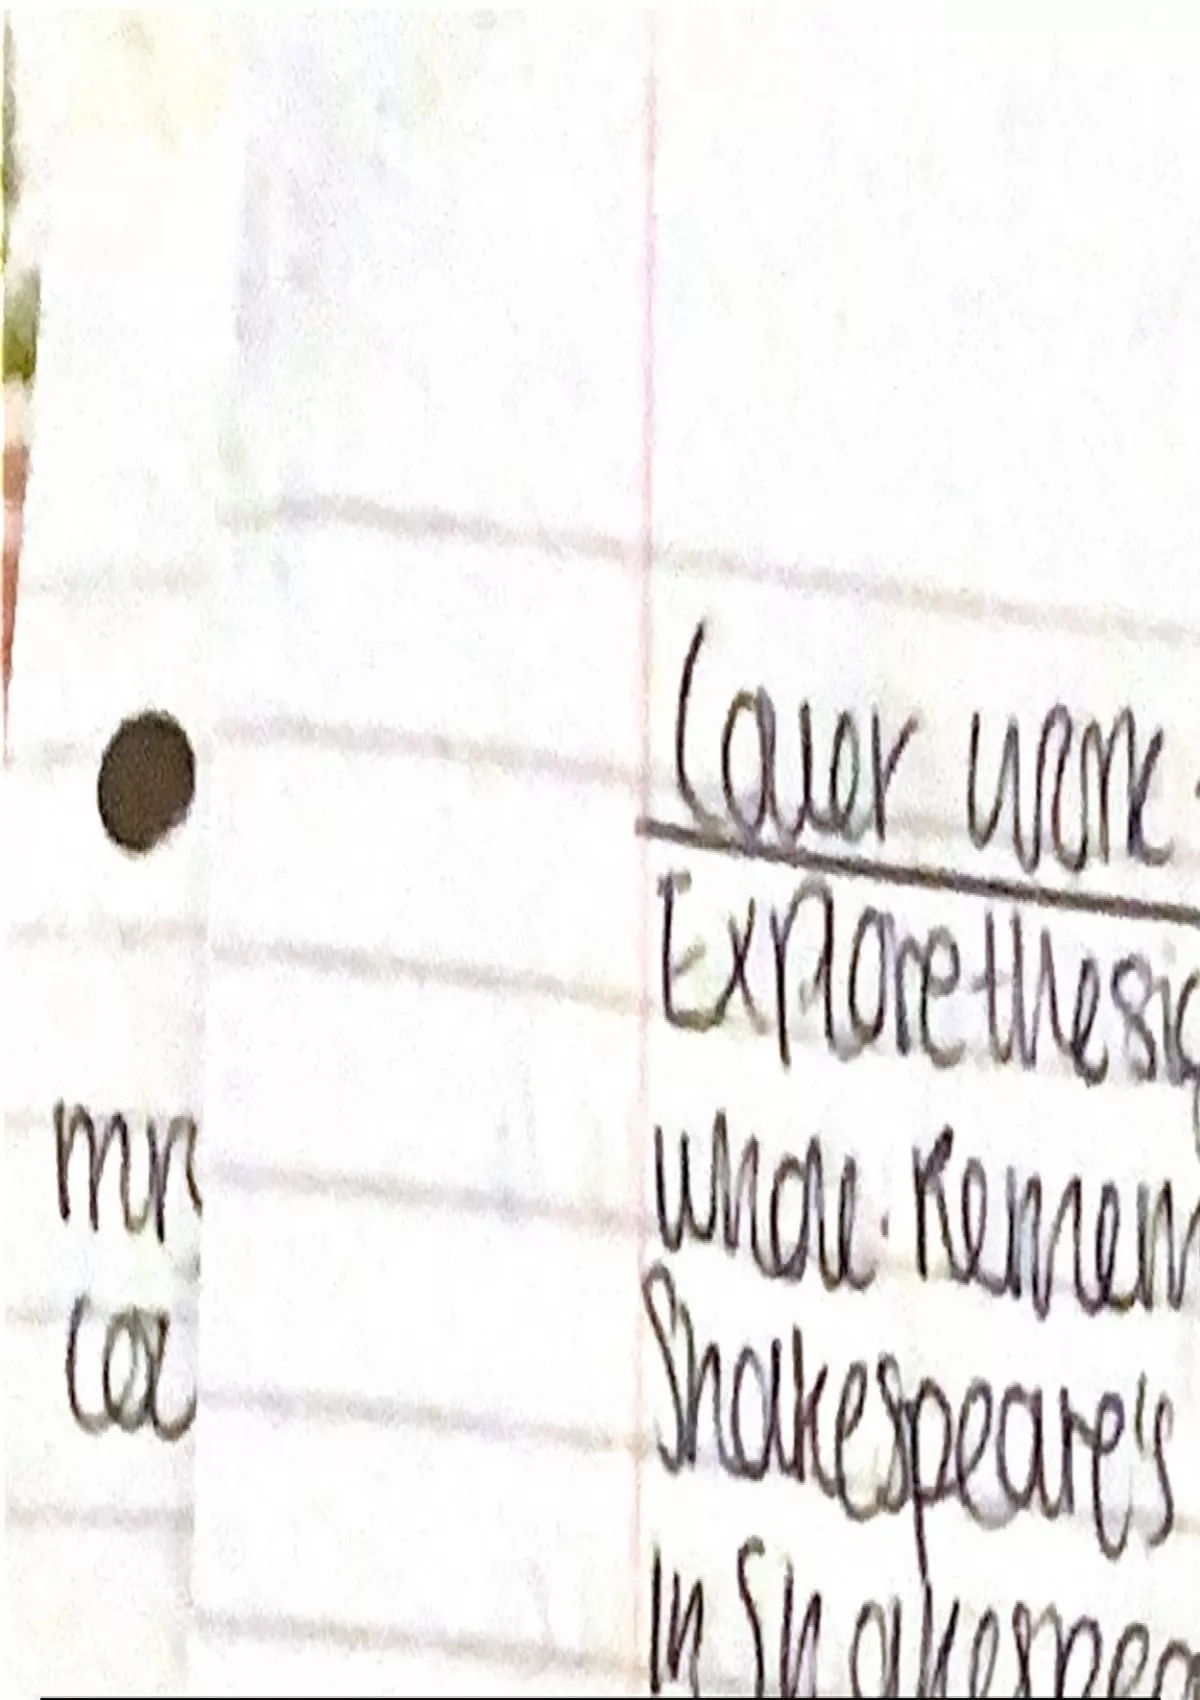 Later work
Explore the sig
whole. Remem
Shakespeare's
In Shakespea